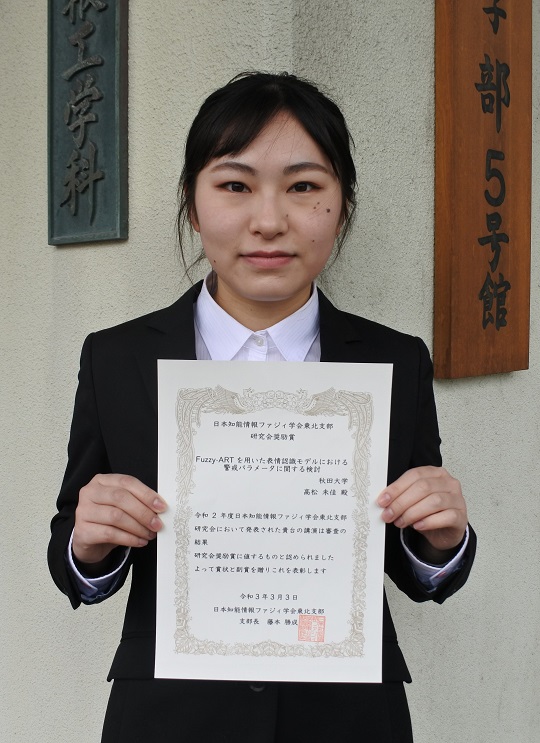 工学科
部5号館
日本知能情報ファジィ学会東北支部
研究会奨励賞
Fuzzy-ARTを用いた表情認識モデルにおける
警戒パラメータに関する検討
秋田大学
高松 未佳 殿
令和2年度日本知能情報ファジィ学会東北支部
研究会において発表された貴台の講演は審査の
結果
研究会奨励賞に値するものと認められました
よって賞状と副賞を贈りこれを表彰します
令和3年3月3日
日本知能情報ファジィ学会東北支部
支部長 藤本 勝成